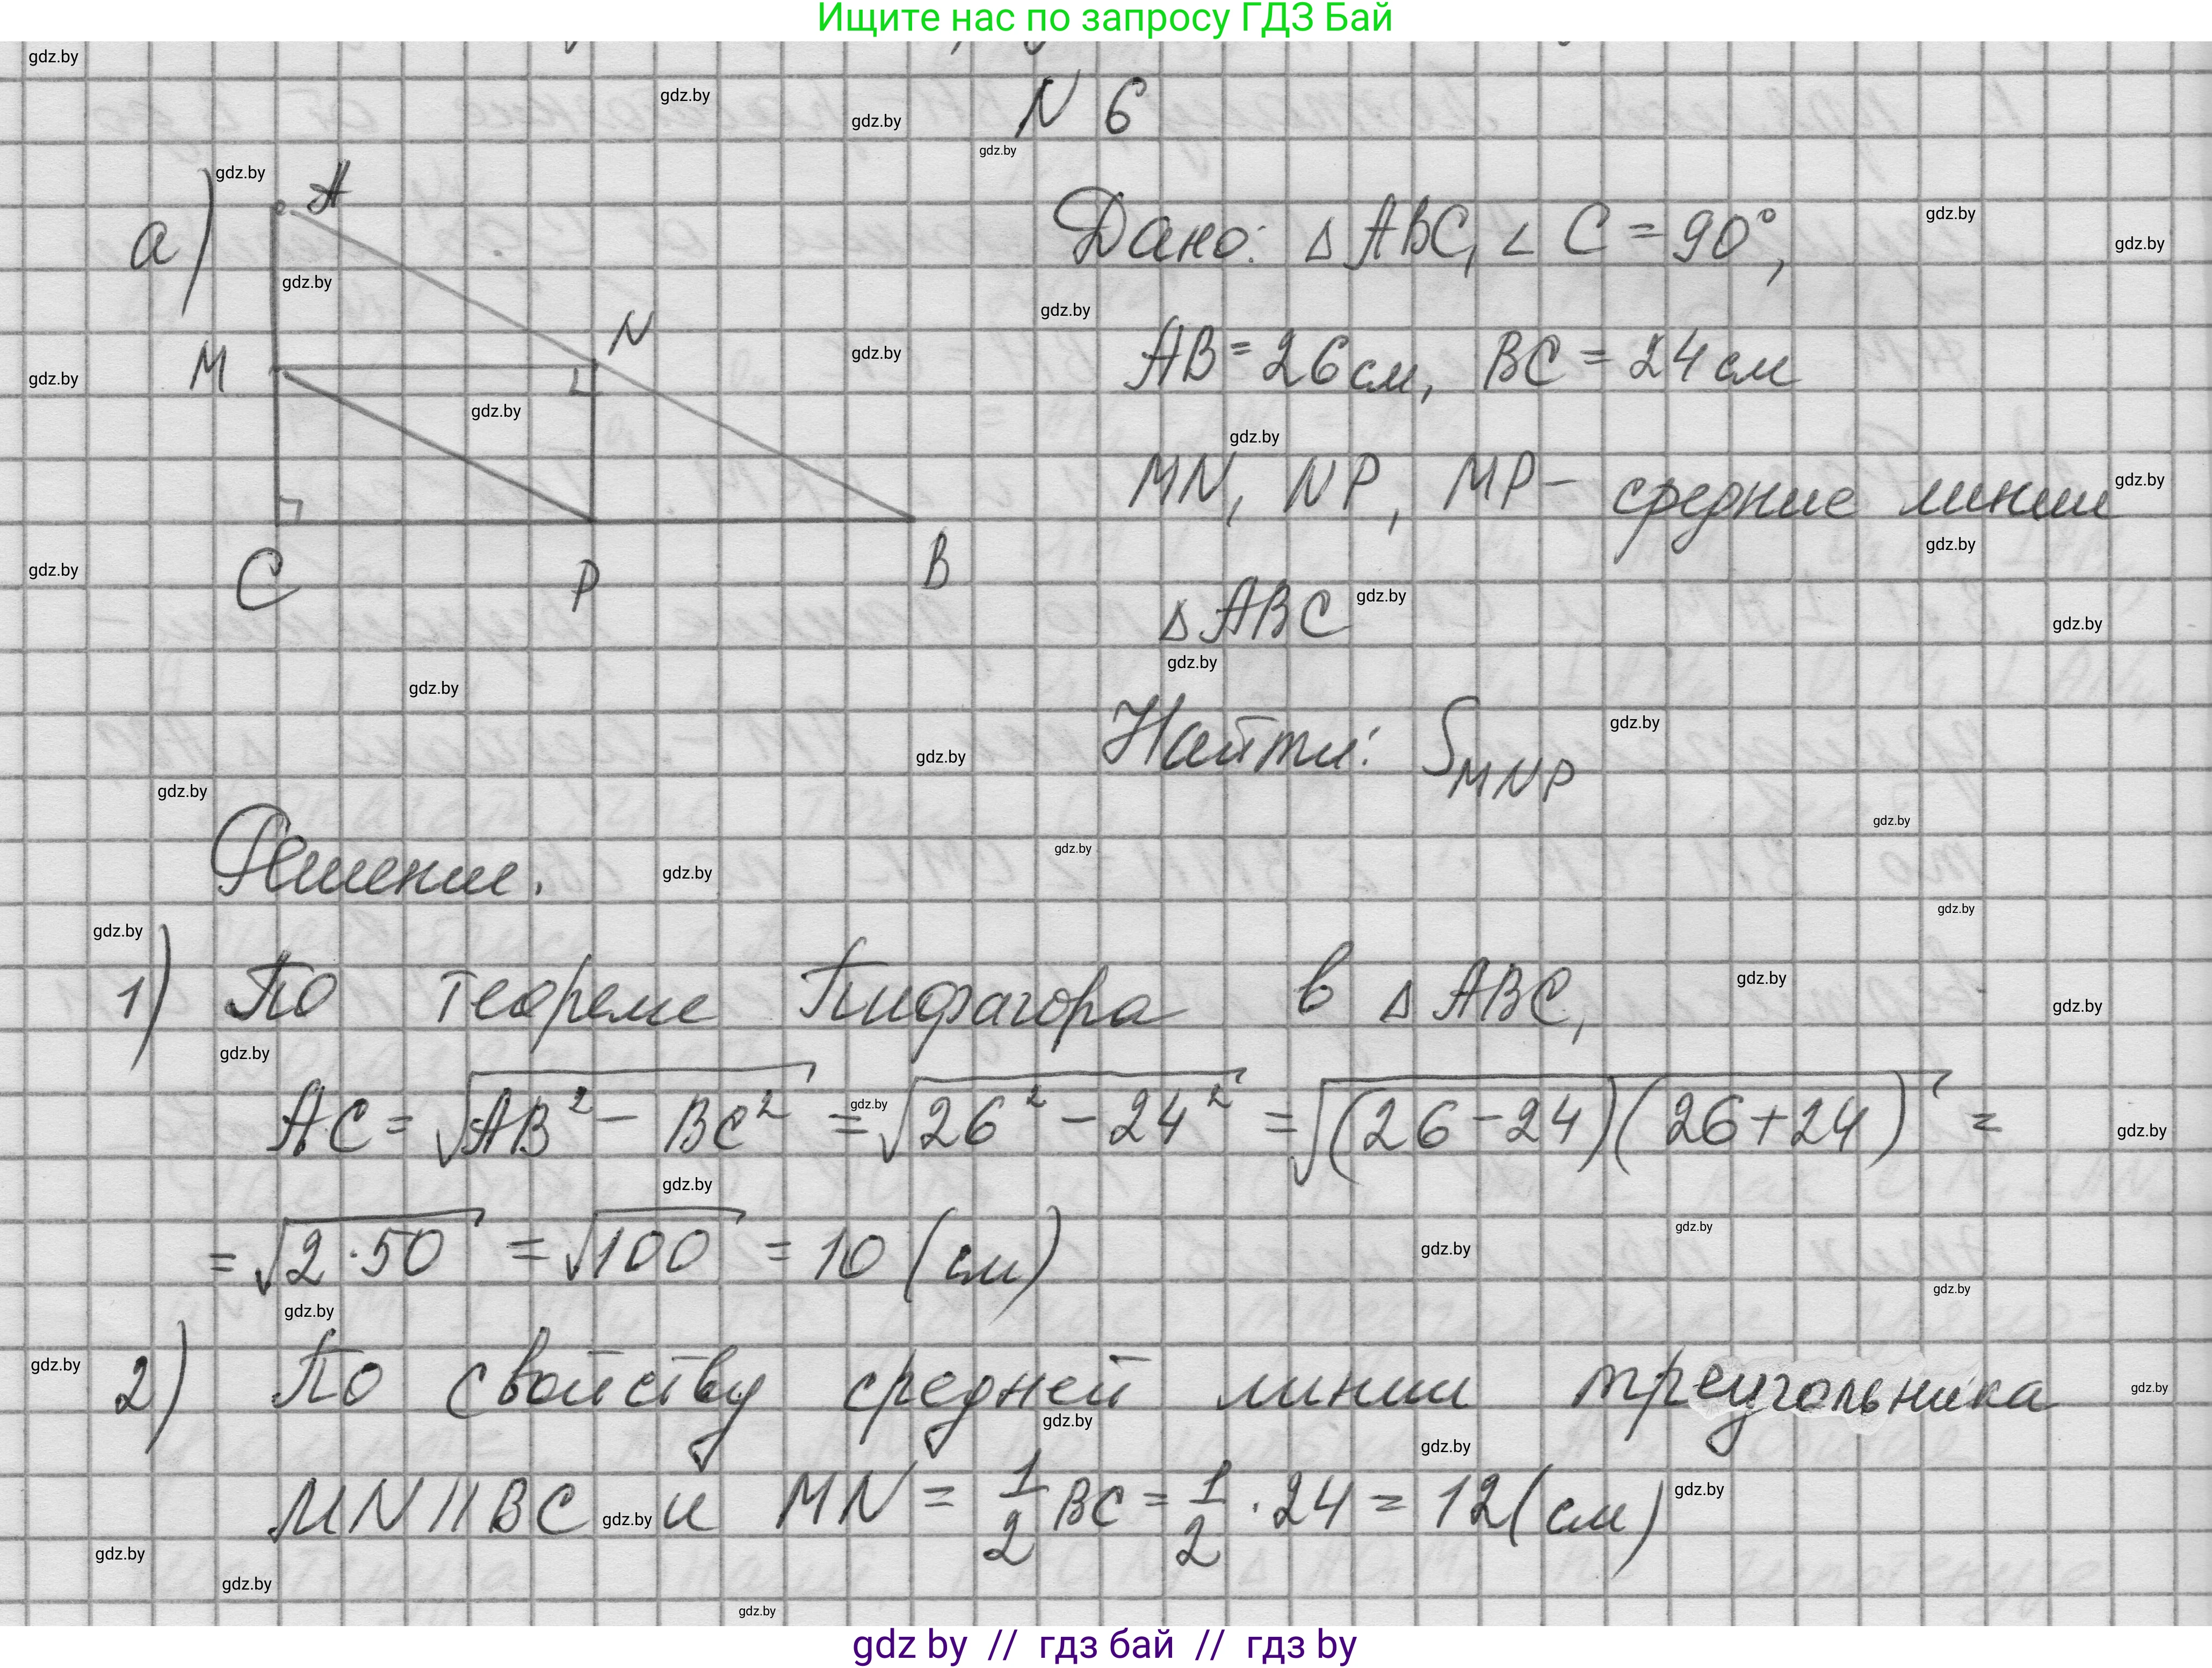 Ищите нас по запросу ГДЗ Бай
N 6
а)
A
M
N
C
P
B
Дано: △ ABC, ∠ C = 90°,
AB = 26 см, BC = 24 см
MN, NP, MP - средние линии
△ ABC
Найти: S_MNP
Решение.
1) По теореме Пифагора в △ ABC,
AC = √(AB² - BC²) = √(26² - 24²) = √((26-24)(26+24)) =
= √(2·50) = √100 = 10 (см)
2) По свойству средней линии треугольника
MN || BC и MN = 1/2 BC = 1/2 · 24 = 12 (см)
gdz by // гдз бай // гдз by